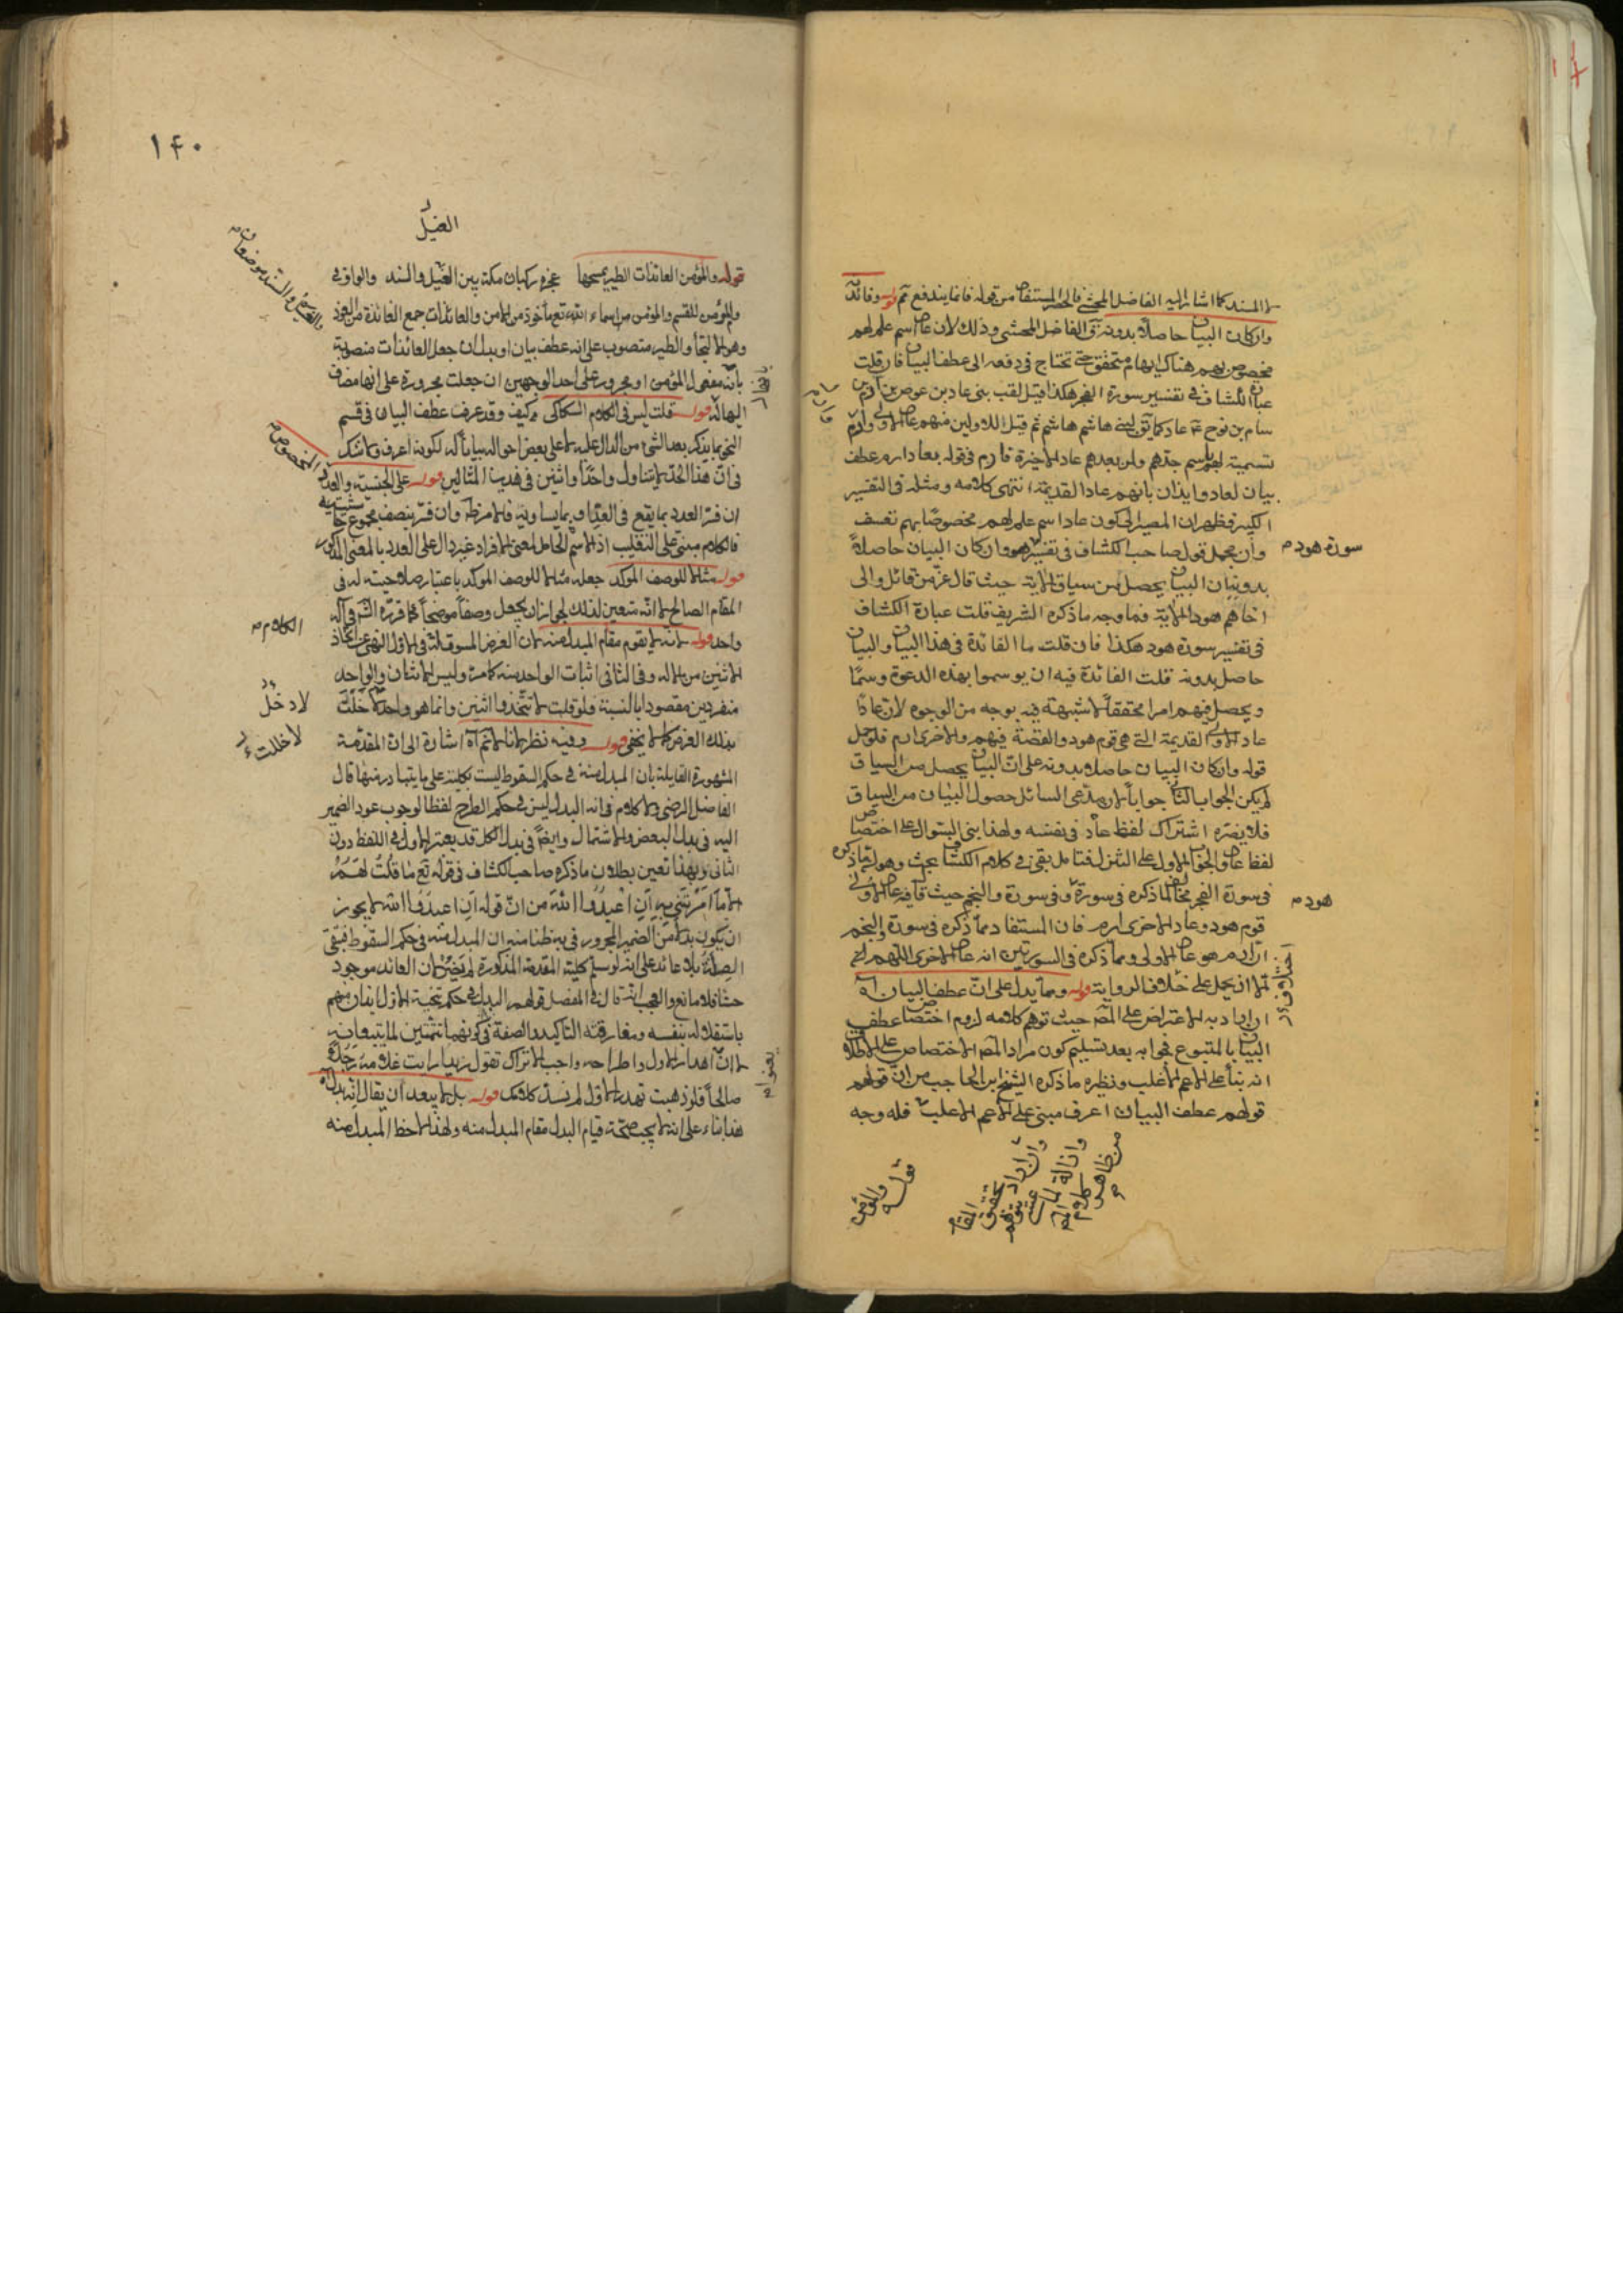 لا المسند كما اشار اليه الفاضل المحشى فالحصر المستفاد من قوله فانما يندفع تم قوله وفائدة
وان كان البيان حاصلا بدونه قال الفاضل المحشى وذلك لان عاد اسم علم لهم
مخصوص بهم هناك ابهام متحقق حتى تحتاج فى دفعه الى عطف البيان فان قلت
عبارة الكشاف فى تفسير سورة الفجر هكذا قيل لعقب بنى عاد بن عوص بن ارم بن
سام بن نوح عاد كما يقال لبنى هاشم هاشم ثم قيل للاولين منهم عاد الاولى وارم
تسمية لهم باسم جدهم ولمن بعدهم عاد الاخيرة فارم فى قوله بعاد ارم عطف
بيان لعاد وايذان بانهم عاد القديمة انتهى كلامه ومثله فى التفسير
الكبير فظهر ان المصير الى كون عاد اسم علم لهم مخصوصا بهم تعسف
وان يحمل قول صاحب الكشاف فى تفسير هود وان كان البيان حاصلا
سورة هود
بدونه ان البيان يحصل من سياق الاية حيث قال عز من قائل والى
اخاهم هود الاية فما وجه ما ذكره الشريف قلت عبارة الكشاف
فى تفسير سورة هود هكذا فان قلت ما الفائدة فى هذا البيان والبيان
حاصل بدونه قلت الفائدة فيه ان يوسموا بهذه الدعوة وسما
ويحصل فيهم امرا محققا لا شبهة فيه بوجه من الوجوه لان عادا
عاد الاولى القديمة التى هى قوم هود والقصة فيهم والاخرى ارم فلو حمل
قوله وان كان البيان حاصلا بدونه على ان البيان يحصل من السياق
لم يكن الجواب الثانى جوابا لان مدعى السائل حصول البيان من السياق
فلا يضره اشتراك لفظ عاد فى نفسه ولهذا بنى السؤال على اختصاص
لفظ عاد والجواب الاول على التنزل فتامل بقى فى كلام الكشاف بحث وهو ان ما ذكره
فى سورة الفجر مخالف لما ذكره فى سورة وفى سورة والنجم حيث قال فيه عاد الاولى
هود
قوم هود وعاد الاخرى ارم فان المستفاد مما ذكره فى سورة والفجر
ان ارم هو عاد الاولى ومما ذكره فى السورتين انه عاد الاخرى اللهم
الا ان يحمل على خلاف الرواية قوله ومما يدل على ان عطف البيان اه
ان اراد به الاعتراض على المص حيث توهم كلامه لزوم اختصاص عطف
البيان بالمتبوع فجوابه بعد تسليم كون مراد المص الاختصاص على الاطلاق
انه بناء على الاعم الاغلب ونظيره ما ذكره الشيخ ابن الحاجب من ان قولهم
قولهم عطف البيان اعرف مبنى على الاعم الاغلب فله وجه
وان اراد تحقيق المقام
من ظاهر كلام
قوله والمؤمن
١٤٠
الغيل
قوله والمؤمن العائذات الطير يمسحها عجزه ركبان مكة بين الغيل والسند والواو فى
والمؤمن للقسم والمؤمن من اسماء الله تع مأخوذ من الامن والعائذات جمع العائذة من العوذ
وهو الالتجأ والطير منصوب على انه عطف بيان او بدل ان جعل العائذات منصوبة
بانه مفعول المؤمن او مجرور على احد الوجهين ان جعلت مجرورة على انها مضاف
اليها له قوله قلت ليس فى كلام السكاكى كيف وقد عرف عطف البيان فى قسم
النحو بما يذكر بعد الشئ من الدال عليه لا على بعض احواله بيانا له لكونه اعرف ولا شك
فى ان هذا الحد لا يتناول واحدا واثنين فى هذين المثالين قوله على الجنسية والعدد
المخصوص
ان فسر العدد بما يقع فى العد او بما يساويه فالامر ظ وان فسر بنصف مجموع حاشيتيه
فالكلام مبنى على التغليب اذ الاسم الحامل لمعنى الافراد غير دال على العدد بالمعنى المذكور
قوله مثلا للوصف الموكد جعله مثالا للوصف الموكد باعتبار صلاحيته له فى
المقام الصالح لا انه متعين لذلك لجواز ان يجعل وصفا موضحا كما قرره الشر فى اله
الكلام
واحد قوله لانه لا يقوم مقام المبدل منه لان الغرض المسوق له فى الاول النهى عن اتخاذ
الاثنين من الاله وفى الثانى اثبات الواحد منه كما مر وليس الاثنان والواحد
منفردين مقصودا بالنسبة فلو قلت لا تتخذوا اثنين وانما هو واحد لاخللت
لا دخل
لاخللت
بذلك الغرض كما لا يخفى قوله وفيه نظر لانا لا نم اه اشارة الى ان المقدمة
المشهورة القايلة بان المبدل منه فى حكم السقوط ليست بكلية على ما يتبادر منها قال
الفاضل الرضى ولا كلام فى انه المبدل ليس فى حكم الطرح لفظا لوجوب عود الضمير
اليه فى بدل البعض والاشتمال وايضا فى بدل الكل قد يعتبر الاول فى اللفظ دون
الثانى وبهذا تعين بطلان ما ذكره صاحب الكشاف فى قوله تع ما قلت لهم
الا ما امرتنى به ان اعبدوا الله من ان قوله ان اعبدوا الله لا يجوز
ان يكون بدلا من الضمير المجرور فى به ظنا منه ان المبدل منه فى حكم السقوط فتبقى
الصلة بلا عائد على انه لو سلم كلية المقدمة المذكورة لم يضر لان العائد موجود
حسا فلا مانع والعجب انه قال فى المفصل قولهم البدل فى حكم تنحية الاول ايذان منهم
باستقلاله بنفسه ومفارقته التاكيد والصفة فى كونهما تتمتين لما يتبعانه
لا ان اهدار الاول واطراحه واجب الا تراك تقول زيدا رايت غلامه رجلا
صالحا فلو ذهبت تهدر الاول لم يسد كلامك قوله بل لا يبعد ان يقال انه بدل اه
هذا بناء على انه لا يجب صحة قيام البدل مقام المبدل منه ولهذا لاحظ المبدل منه